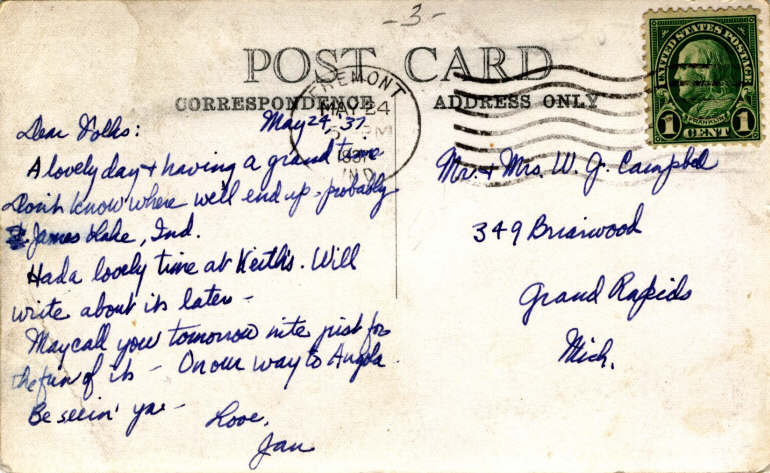 -3-
POST CARD
CORRESPONDENCE
ADDRESS ONLY
FREMONT
MAY 24
IND.
UNITED STATES POSTAGE
FRANKLIN
1 CENT 1
May 24, 37
Dear Folks:
A lovely day & having a grand time
Don't know where we'll end up - probably
James Lake, Ind.
Had a lovely time at Keith's. Will
write about it later -
May call you tomorrow nite just for
the fun of it - On our way to Angola.
Be seein' ya -
Love,
Jan
Mr. & Mrs. W. G. Campbell
349 Briarwood
Grand Rapids
Mich.